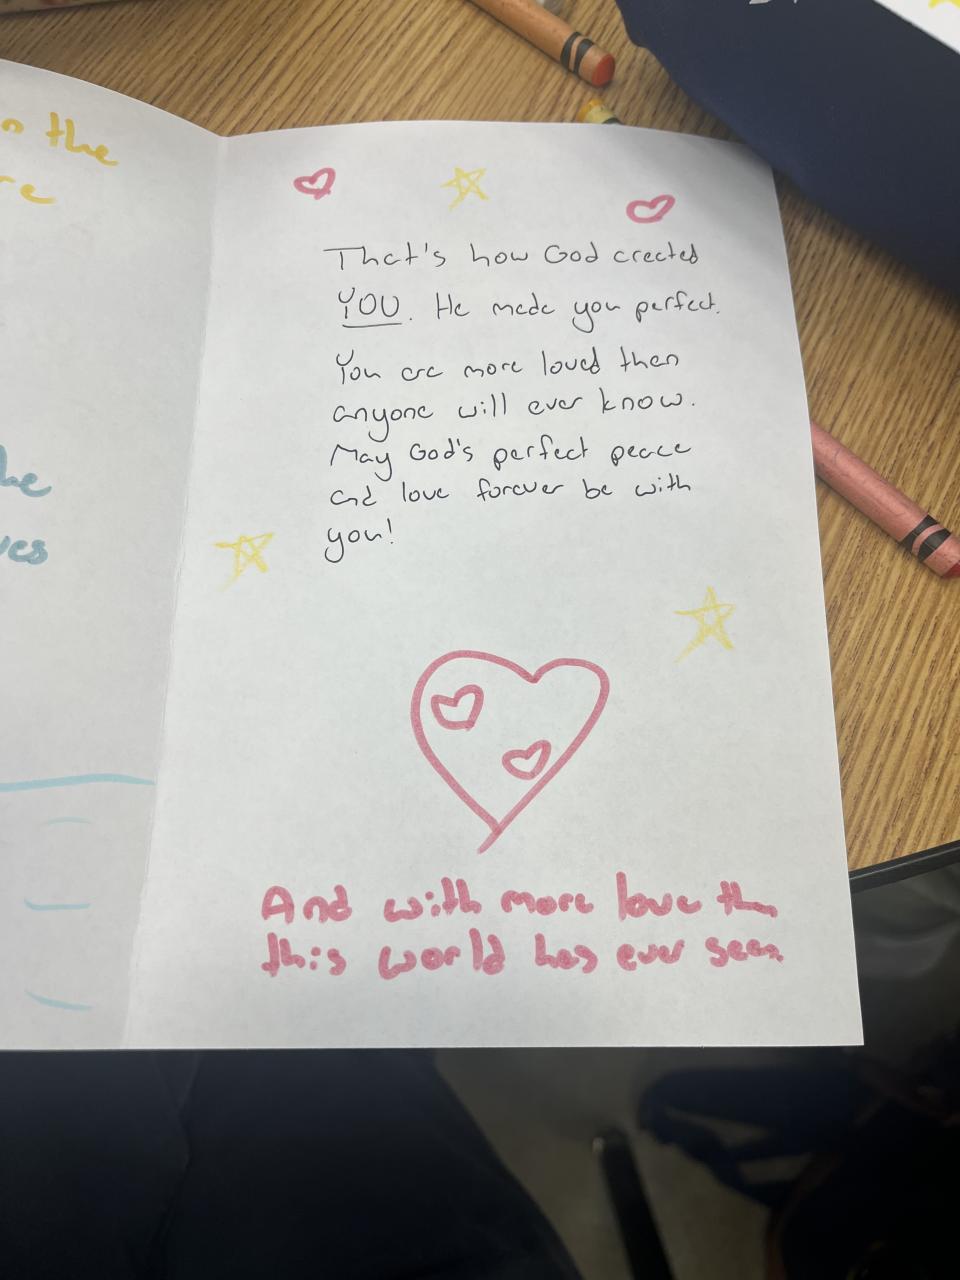 n the
re
he
ves
That's how God created
YOU. He made you perfect.
You are more loved then
anyone will ever know.
May God's perfect peace
and love forever be with
you!
And with more love
this world has ever seen